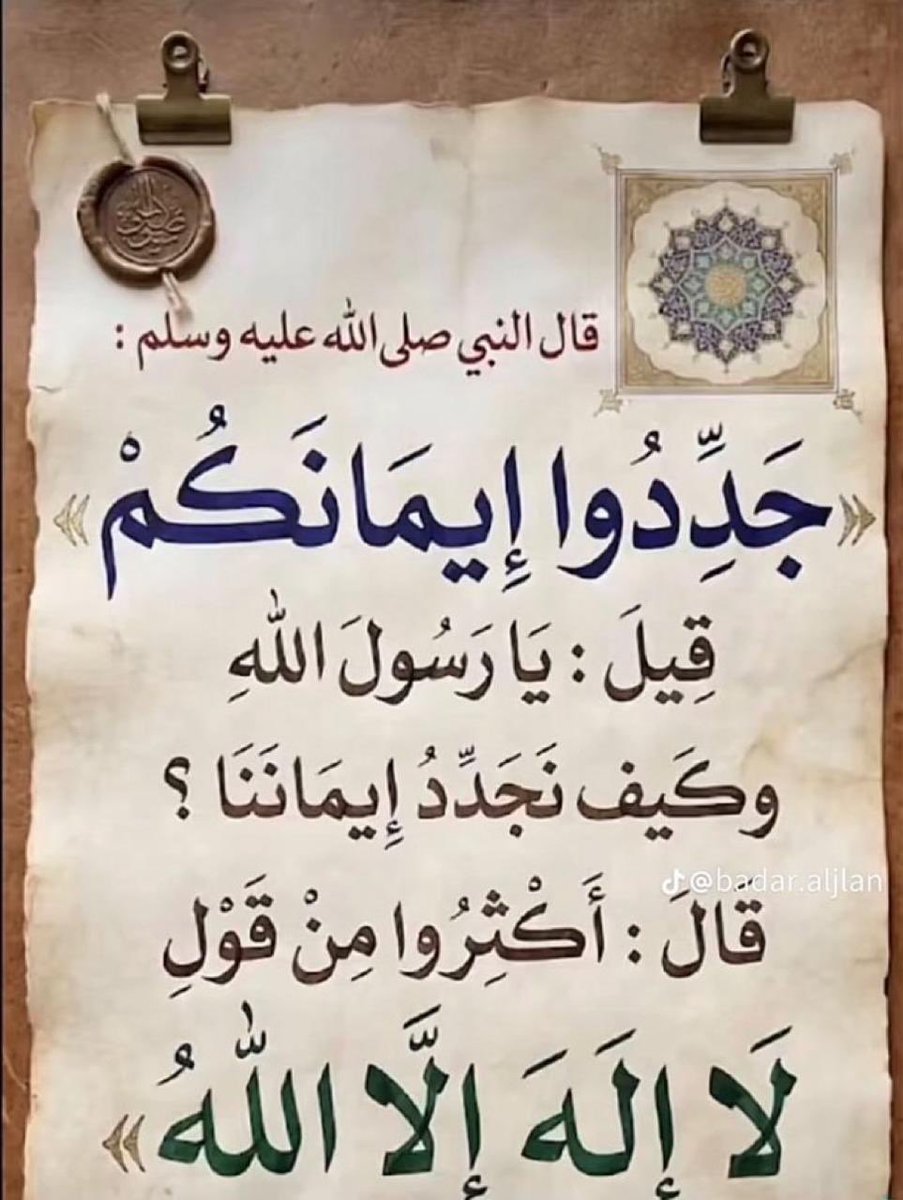 قال النبي صلى الله عليه وسلم :
«جَدِّدُوا إِيمَانَكُمْ»
قِيلَ : يَا رَسُولَ اللهِ
وكَيف نَجَدِّدُ إِيمَانَنَا ؟
@badar.aljlan
قَالَ : أَكْثِرُوا مِنْ قَوْلِ
لَا إِلَهَ إِلَّا اللهُ»